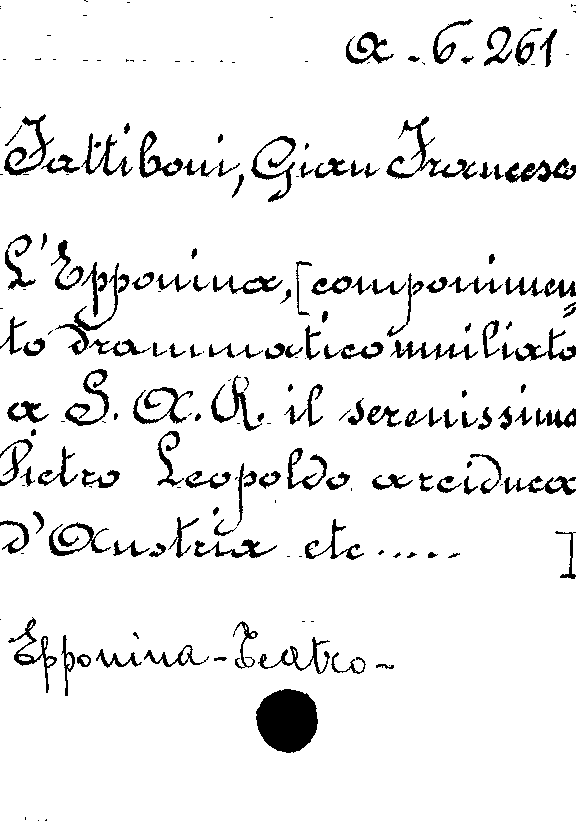 a. 6. 261
Fattiboni, Gian Francesco
L'Epponina, [componimen=
to drammatico umiliato
a S. A. R. il serenissimo
Pietro Leopoldo arciduca
d'Austria etc.....
Epponina - Teatro -